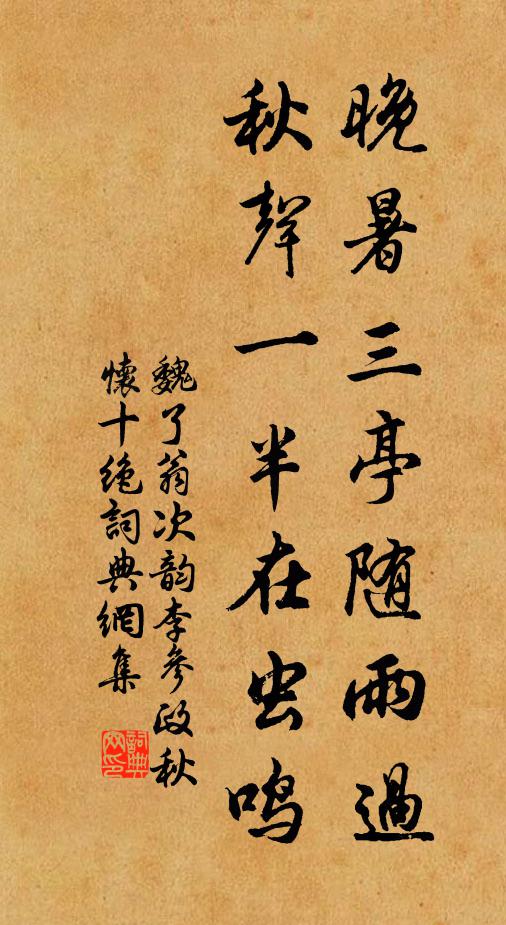 晚暑三亭随雨過
秋聲一半在虫鸣
魏了翁次韵李參政秋
懷十绝詞典網集
詞典網印